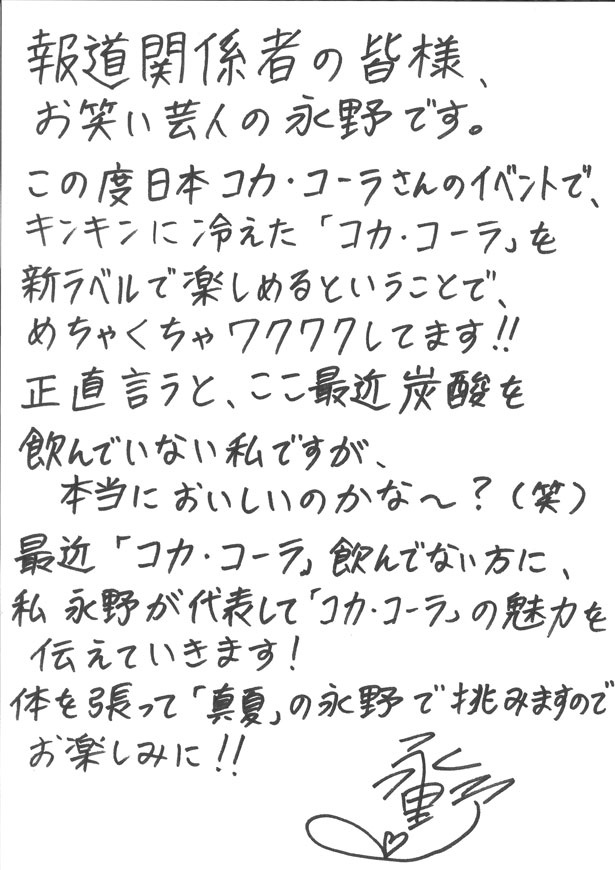 報道関係者の皆様、
お笑い芸人の永野です。
この度日本コカ・コーラさんのイベントで、
キンキンに冷えた「コカ・コーラ」を
新ラベルで楽しめるということで、
めちゃくちゃワクワクしてます!!
正直言うと、ここ最近炭酸を
飲んでいない私ですが、
本当においしいのかな〜?(笑)
最近「コカ・コーラ」飲んでない方に、
私永野が代表して「コカ・コーラ」の魅力を
伝えていきます!
体を張って「真夏」の永野で挑みますので
お楽しみに!!
永野